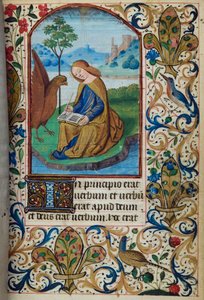 In principio erat
verbum et verbū
erat apud deum
et deus erat verbum. hoc erat